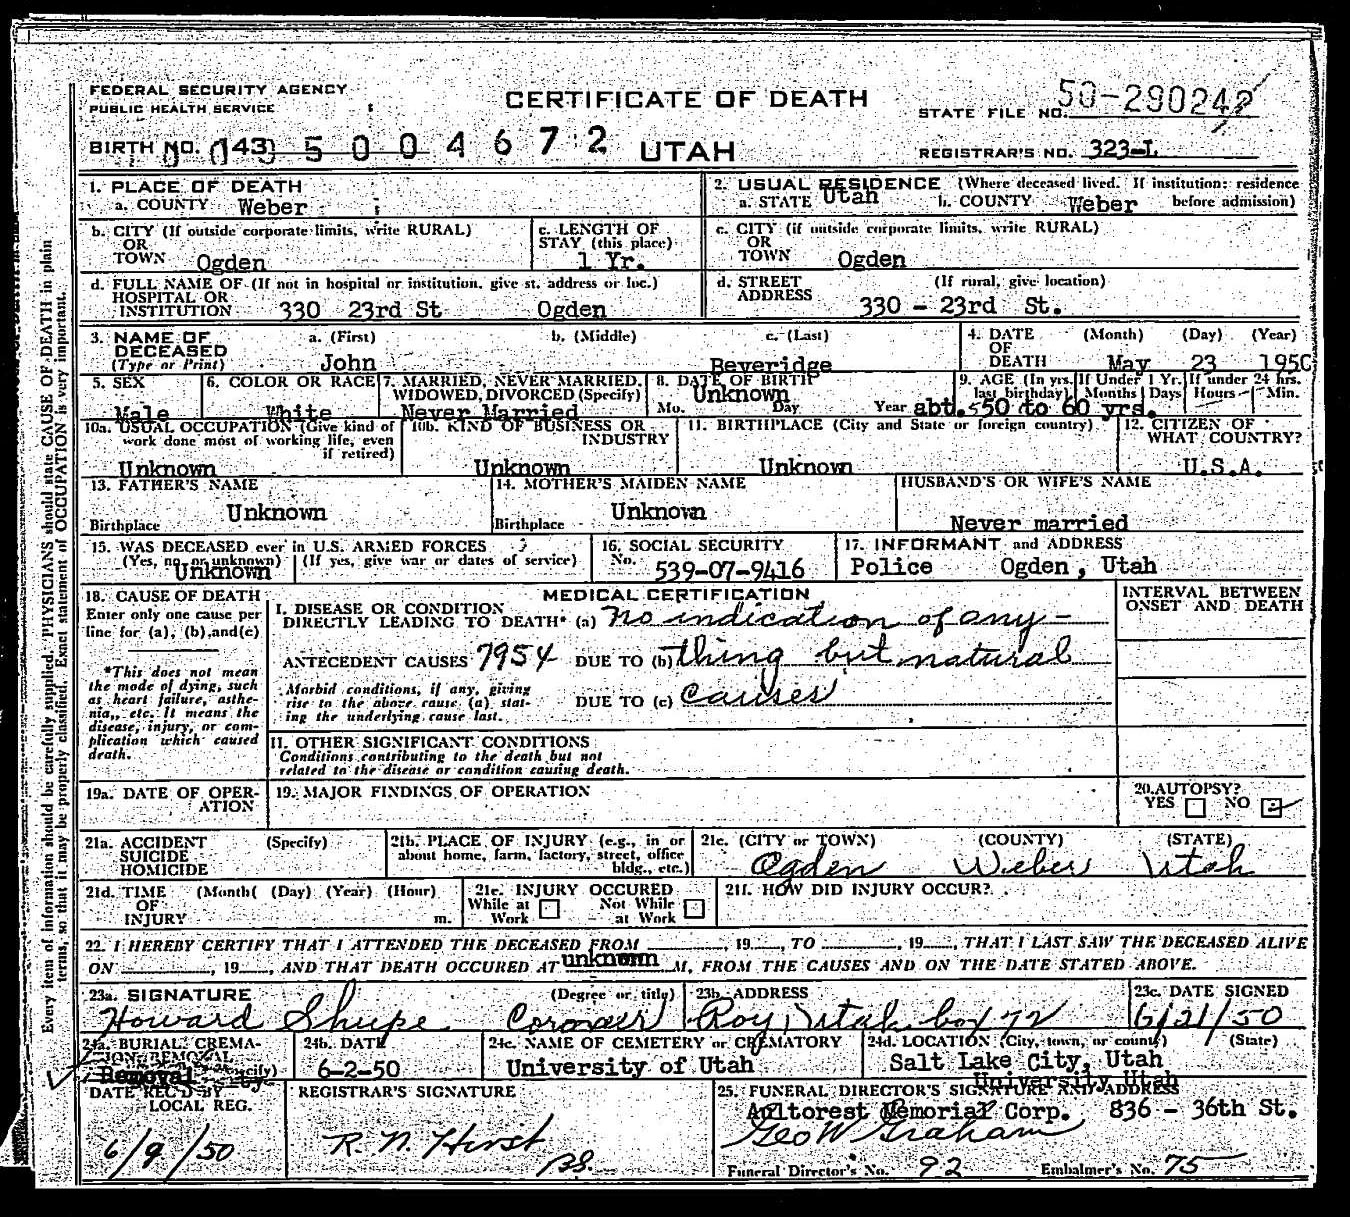 FEDERAL SECURITY AGENCY
PUBLIC HEALTH SERVICE
CERTIFICATE OF DEATH
STATE FILE NO. 50-290242
BIRTH NO. 143 5004672 UTAH
REGISTRAR'S NO. 323-L
Every item of information should be carefully supplied. PHYSICIANS should state CAUSE OF DEATH in plain
terms, so that it may be properly classified. Exact statement of OCCUPATION is very important.
1. PLACE OF DEATH
a. COUNTY Weber
2. USUAL RESIDENCE (Where deceased lived. If institution: residence
a. STATE Utah b. COUNTY Weber before admission)
b. CITY (If outside corporate limits, write RURAL)
OR
TOWN Ogden
c. LENGTH OF
STAY (this place)
1 Yr.
c. CITY (if outside corporate limits, write RURAL)
OR
TOWN Ogden
d. FULL NAME OF (If not in hospital or institution, give st. address or loc.)
HOSPITAL OR
INSTITUTION 330 23rd St Ogden
d. STREET (If rural, give location)
ADDRESS 330 - 23rd St.
3. NAME OF DECEASED
(Type or Print)
a. (First) b. (Middle) c. (Last)
John Beveridge
4. DATE OF DEATH (Month) (Day) (Year)
May 23 1950
5. SEX
Male
6. COLOR OR RACE
White
7. MARRIED, NEVER MARRIED,
WIDOWED, DIVORCED (Specify)
Never Married
8. DATE OF BIRTH
Unknown
Mo. Day Year
9. AGE (In yrs. last birthday) If Under 1 Yr. Months Days If under 24 hrs. Hours Min.
abt. 50 to 60 yrs.
10a. USUAL OCCUPATION (Give kind of
work done most of working life, even
if retired)
Unknown
10b. KIND OF BUSINESS OR
INDUSTRY
Unknown
11. BIRTHPLACE (City and State or foreign country)
Unknown
12. CITIZEN OF
WHAT COUNTRY?
U.S.A.
13. FATHER'S NAME
Unknown
Birthplace
14. MOTHER'S MAIDEN NAME
Unknown
Birthplace
HUSBAND'S OR WIFE'S NAME
Never married
15. WAS DECEASED ever in U.S. ARMED FORCES
(Yes, no or unknown) (If yes, give war or dates of service)
Unknown
16. SOCIAL SECURITY
No. 539-07-9416
17. INFORMANT and ADDRESS
Police Ogden, Utah
18. CAUSE OF DEATH
Enter only one cause per
line for (a), (b), and (c)
*This does not mean
the mode of dying, such
as heart failure, asthe-
nia,, etc. It means the
disease, injury, or com-
plication which caused
death.
MEDICAL CERTIFICATION
INTERVAL BETWEEN
ONSET AND DEATH
I. DISEASE OR CONDITION
DIRECTLY LEADING TO DEATH* (a) No indication of any-
ANTECEDENT CAUSES 7954 DUE TO (b) thing but natural
Morbid conditions, if any, giving
rise to the above cause (a) stat-
ing the underlying cause last.
DUE TO (c) causes
11. OTHER SIGNIFICANT CONDITIONS
Conditions contributing to the death but not
related to the disease or condition causing death.
19a. DATE OF OPER-
ATION
19. MAJOR FINDINGS OF OPERATION
20. AUTOPSY?
YES NO
21a. ACCIDENT (Specify)
SUICIDE
HOMICIDE
21b. PLACE OF INJURY (e.g., in or
about home, farm, factory, street, office
bldg., etc.)
21c. (CITY or TOWN) (COUNTY) (STATE)
Ogden Weber Utah
21d. TIME (Month( (Day) (Year) (Hour)
OF
INJURY m.
21e. INJURY OCCURED
While at Work Not While at Work
21f. HOW DID INJURY OCCUR?
22. I HEREBY CERTIFY THAT I ATTENDED THE DECEASED FROM , 19 , TO , 19 , THAT I LAST SAW THE DECEASED ALIVE
ON , 19 , AND THAT DEATH OCCURED AT unknown M, FROM THE CAUSES AND ON THE DATE STATED ABOVE.
23a. SIGNATURE (Degree or title)
Howard Shupe Coroner
23b. ADDRESS
Roy, Utah box 72
23c. DATE SIGNED
6/21/50
24a. BURIAL, CREMA-
TION, REMOVAL
(Specify)
Removal
24b. DATE
6-2-50
24c. NAME OF CEMETERY or CREMATORY
University of Utah
24d. LOCATION (City, town, or county) (State)
Salt Lake City, Utah
University Utah
DATE REC'D BY
LOCAL REG.
6/9/50
REGISTRAR'S SIGNATURE
R. N. Hirst
25. FUNERAL DIRECTOR'S SIGNATURE AND ADDRESS
Aultorest Memorial Corp. 836 - 36th St.
Geo W Graham
Funeral Director's No. 92 Embalmer's No. 75